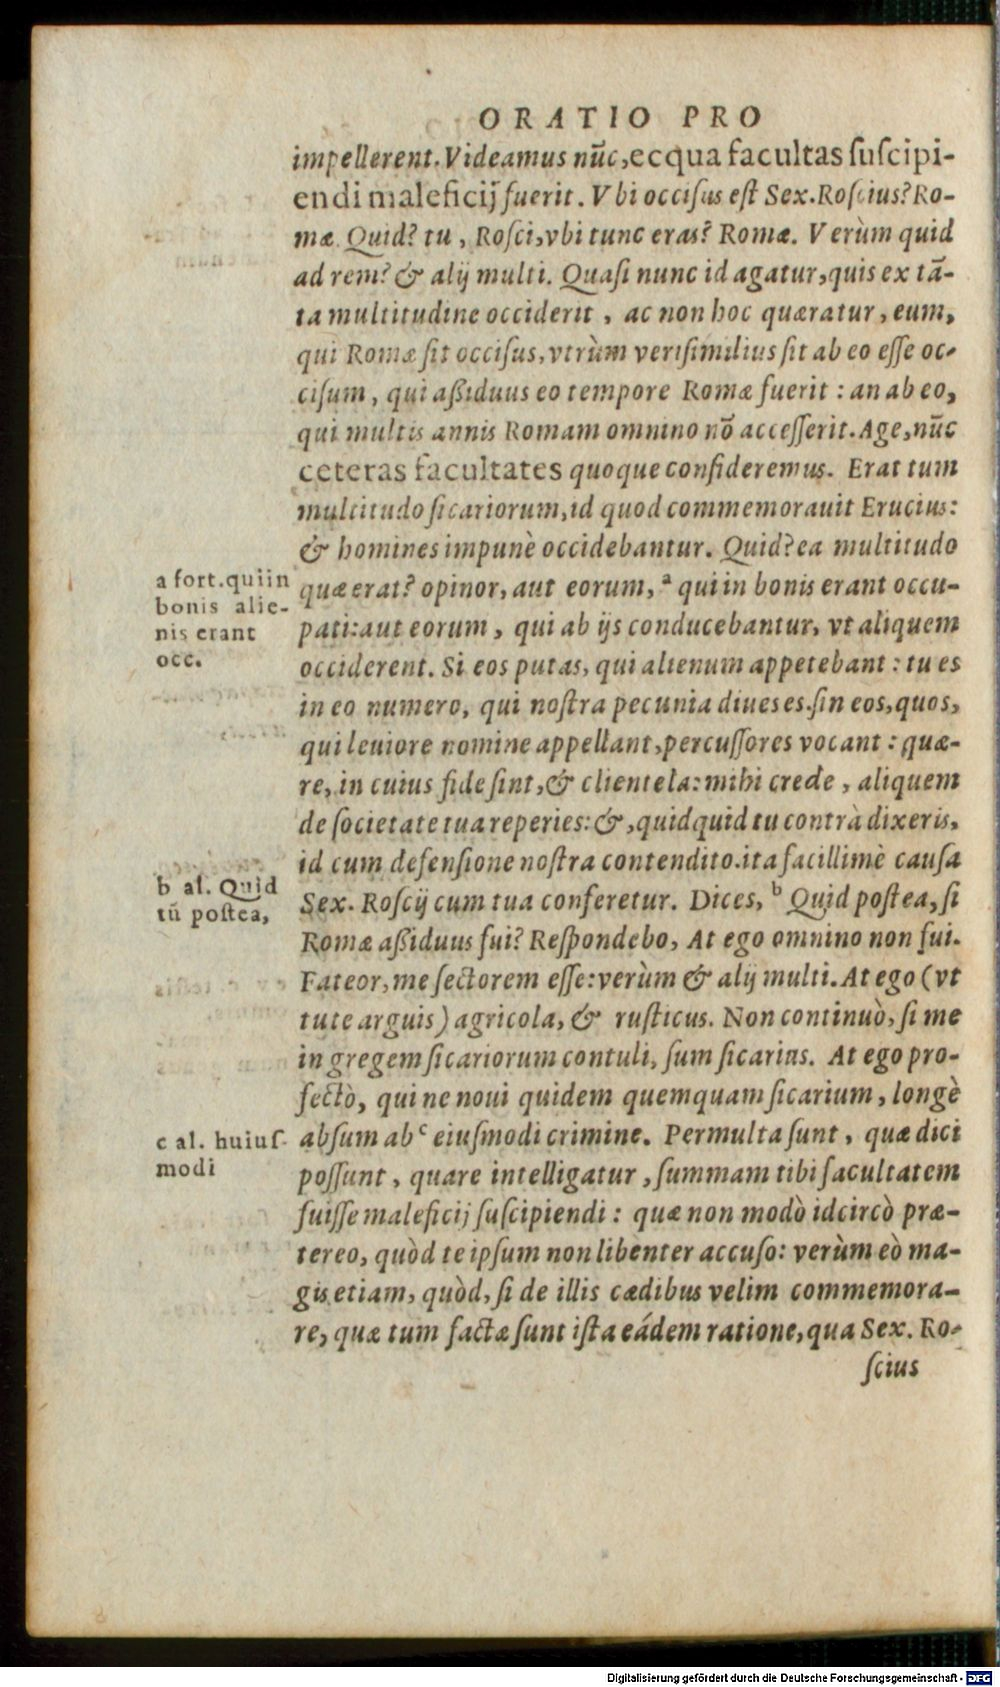 ORATIO PRO
impellerent. Videamus nūc, ecqua facultas ſuſcipi-
endi maleficij fuerit. Vbi occiſus eſt Sex. Roſcius? Ro-
mæ. Quid? tu, Roſci, vbi tunc eras? Romæ. Verùm quid
ad rem? & alij multi. Quaſi nunc id agatur, quis ex tā-
ta multitudine occiderit, ac non hoc quæratur, eum,
qui Romæ ſit occiſus, vtrùm veriſimilius ſit ab eo eſſe oc-
ciſum, qui aßiduus eo tempore Romæ fuerit: an ab eo,
qui multis annis Romam omnino nō acceſſerit. Age, nūc
ceteras facultates quoque conſideremus. Erat tum
multitudo ſicariorum, id quod commemorauit Erucius:
& homines impunè occidebantur. Quid? ea multitudo
quæ erat? opinor, aut eorum, ᵃ qui in bonis erant occu-
pati: aut eorum, qui ab ijs conducebantur, vt aliquem
occiderent. Si eos putas, qui alienum appetebant: tu es
in eo numero, qui noſtra pecunia diues es. ſin eos, quos,
qui leuiore nomine appellant, percuſſores vocant: quæ-
re, in cuius fide ſint, & clientela: mihi crede, aliquem
de ſocietate tua reperies: &, quidquid tu contrà dixeris,
id cum defenſione noſtra contendito. ita facillimè cauſa
Sex. Roſcij cum tua conferetur. Dices, ᵇ Quid poſtea, ſi
Romæ aßiduus fui? Reſpondebo, At ego omnino non fui.
Fateor, me ſectorem eſſe: verùm & alij multi. At ego (vt
tute arguis) agricola, & ruſticus. Non continuò, ſi me
in gregem ſicariorum contuli, ſum ſicarius. At ego pro-
fectò, qui ne noui quidem quemquam ſicarium, longè
abſum ab ᶜ eiuſmodi crimine. Permulta ſunt, quæ dici
poſſunt, quare intelligatur, ſummam tibi facultatem
fuiſſe maleficij ſuſcipiendi: quæ non modò idcircò præ-
tereo, quòd te ipſum non libenter accuſo: verùm eò ma-
gis etiam, quòd, ſi de illis cædibus velim commemora-
re, quæ tum factæ ſunt iſta eádem ratione, qua Sex. Ro-
ſcius
a fort. qui in
bonis alie-
nis erant
occ.
b al. Quid
tū poſtea,
c al. huiuſ-
modi
Digitalisierung gefördert durch die Deutsche Forschungsgemeinschaft - DFG